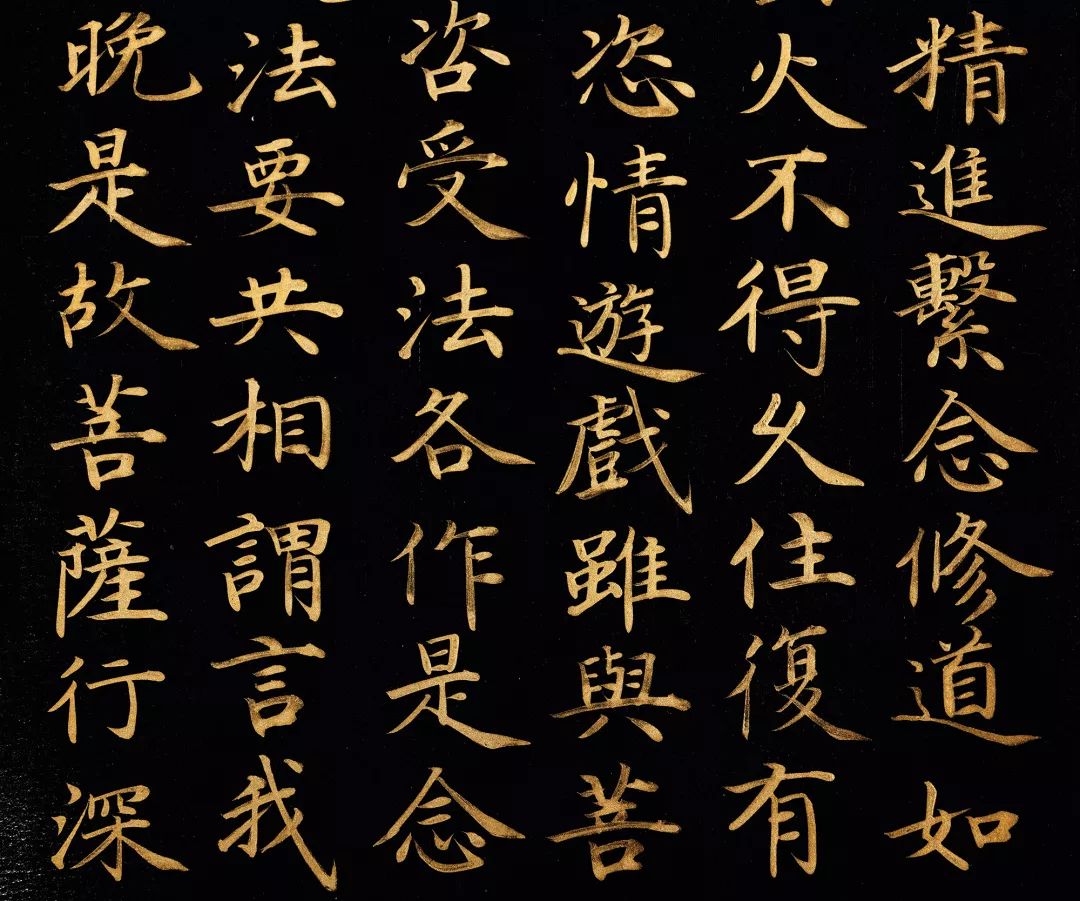 精進繫念修道如
火不得久住復有
恣情遊戲雖與菩
咨受法各作是念
法要共相謂言我
晚是故菩薩行深